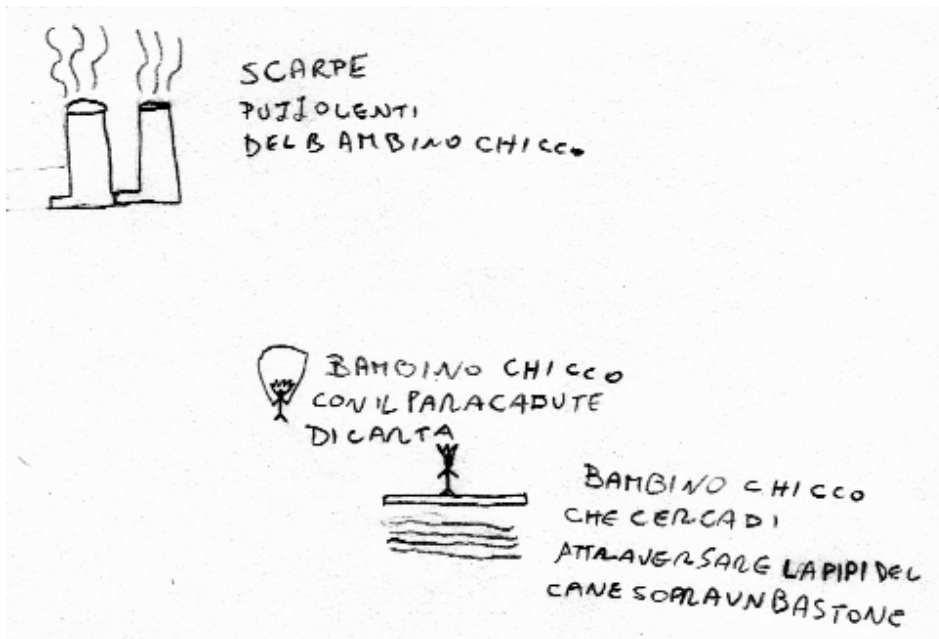 SCARPE
PUZZOLENTI
DEL BAMBINO CHICCO
BAMBINO CHICCO
CON IL PARACADUTE
DI CARTA
BAMBINO CHICCO
CHE CERCA DI
ATTRAVERSARE LA PIPI DEL
CANE SOPRA UN BASTONE